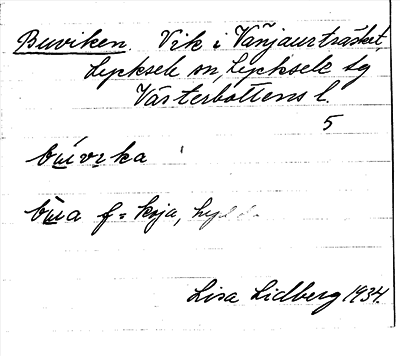 Buviken. Vik i Vañjaurträsket,
Lycksele sn, Lycksele sg
Västerbottens l.
5
búvıka
bùa f = koja,
Lisa Lidberg 1934.